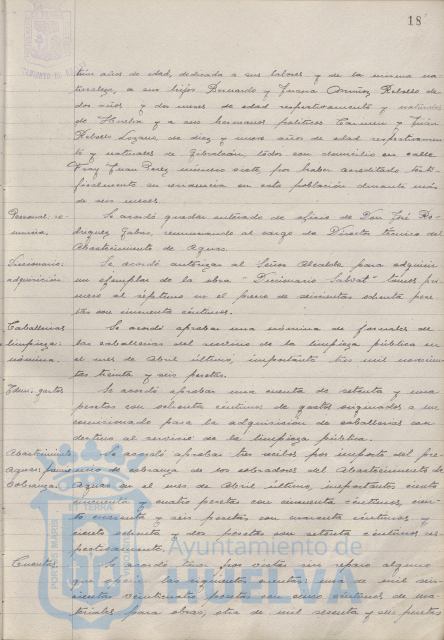 18
tiun años de edad, dedicada a sus labores y de la misma na-
turaleza, a sus hijos Bernardo y Juana Muñoz Rebollo de
dos años y dos meses de edad respectivamente y naturales
de Huelva y a sus hermanos politicos Carmen y Juan
Rebollo Lozano de diez y nueve años de edad respectivamen-
te y naturales de Gibraleón, todos con domicilio en calle
Fray Juan Perez número siete, por haber acreditado testi-
ficalmente su residencia en esta población durante más
de seis meses.
Personal: re-
nuncia.
Se acordó quedar enterado de oficio de Don José Ro-
driguez renunciando al cargo de Director técnico del
Abastecimiento de Aguas.
adquisición
Se acordó autorizar al Señor Alcalde para adquirir
un ejemplar de la obra "Diccionario Salvat" tomos pri-
mero al séptimo en el precio de doscientas ochenta pese-
tas con cincuenta céntimos.
Caballerias
limpieza:
nómina.
Se acordó aprobar una nómina de jornales de
las caballerias del servicio de la limpieza pública en
el mes de Abril último, importante tres mil novecien-
tas treinta y seis pesetas.
Idem: gastos
Se acordó aprobar una cuenta de setenta y una
pesetas con ochenta céntimos de gastos originados a un
comisionado para la adquisición de caballerias con
destino al servicio de la limpieza pública.
Abastecimiento
Aguas: premio
Cobranza.
Se acordó aprobar tres recibos por importe del pre-
mio de cobranza de los cobradores del Abastecimiento de
Aguas en el mes de Abril último, importantes ciento
cincuenta y cuatro pesetas con cincuenta céntimos, cien-
to y seis pesetas con cuarenta céntimos y
ciento ochenta y dos pesetas con setenta céntimos res-
pectivamente.
Cuentas.
Se acordó por vistas sin reparo alguno
que las siguientes cuentas: una de mil seis-
cientas veinticuatro pesetas con cinco céntimos de ma-
teriales para obras; otra de mil sesenta y seis pesetas
Ayuntamiento de
HUELVA